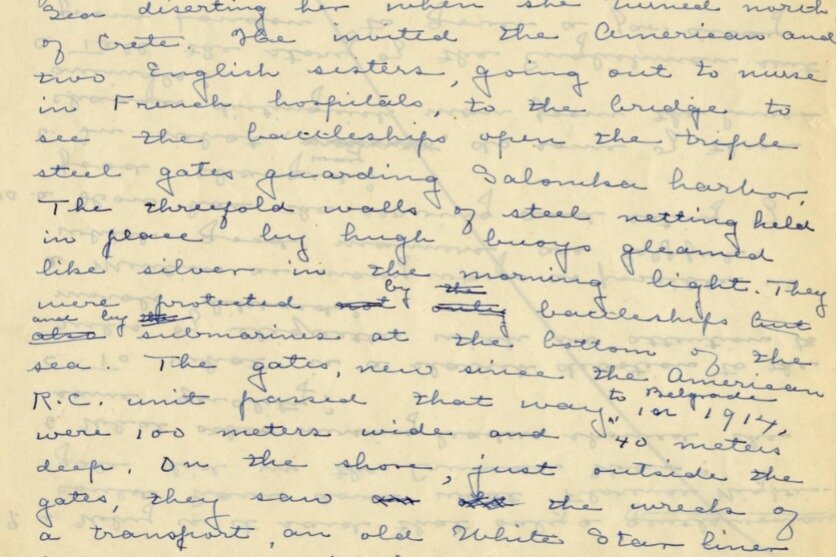 Sea deserting her when she turned north
of Crete. He invited the American and
two English sisters, going out to nurse
in French hospitals, to the bridge to
see the battleships open the triple
steel gates guarding Salonika harbor.
The threefold walls of steel netting held
in place by hugh buoys gleamed
like silver in the morning light. They
by the
were protected not only battleships but
and by the
also submarines at the bottom of the
sea. The gates, new since the American
R.C. unit passed that way to Belgrade in 1914,
were 100 meters wide and 40 meters
deep. On the shore, just outside the
gates, they saw the wrecks of
a transport, an old White Star liner